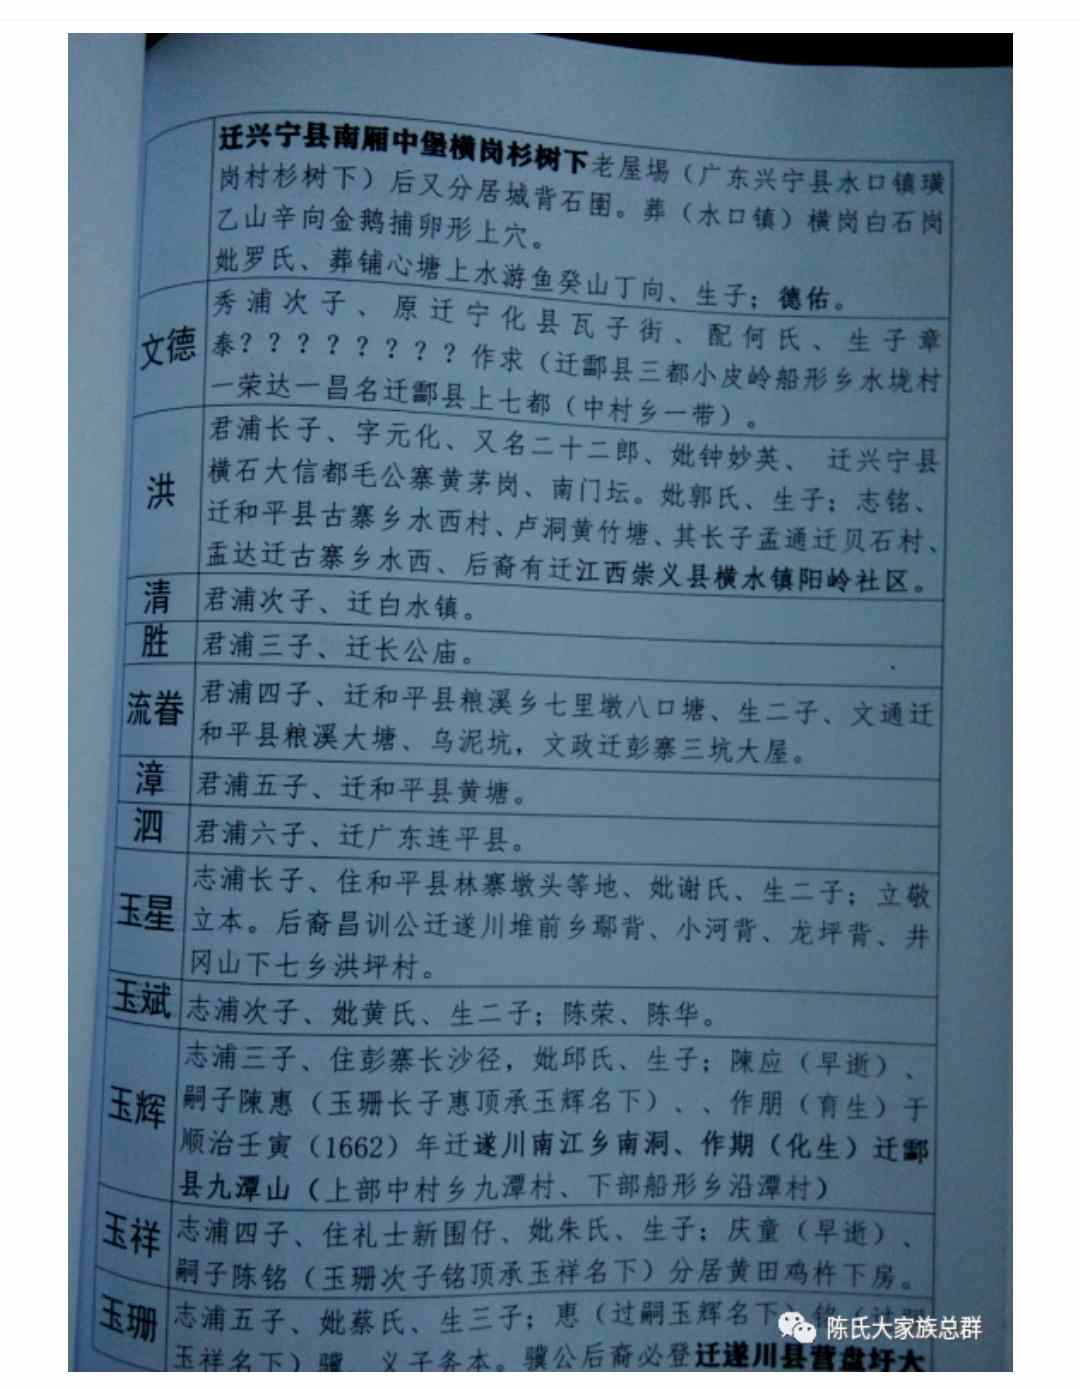 迁兴宁县南厢中堡横岗杉树下老屋場（广东兴宁县水口镇璜
岗村杉树下）后又分居城背石围。葬（水口镇）横岗白石岗
乙山辛向金鹅捕卵形上穴。
妣罗氏、葬铺心塘上水游鱼癸山丁向、生子；德佑。
文德
秀浦次子、原迁宁化县瓦子街、配何氏、生子章
泰？？？？？？？？作求（迁酃县三都小皮岭船形乡水垅村
一荣达一昌名迁酃县上七都（中村乡一带）。
洪
君浦长子、字元化、又名二十二郎、妣钟妙英、 迁兴宁县
横石大信都毛公寨黄茅岗、南门坛。妣郭氏、生子；志铭、
迁和平县古寨乡水西村、卢洞黄竹塘、其长子孟通迁贝石村、
孟达迁古寨乡水西、后裔有迁江西崇义县横水镇阳岭社区。
清
君浦次子、迁白水镇。
胜
君浦三子、迁长公庙。
流眷
君浦四子、迁和平县粮溪乡七里墩八口塘、生二子、文通迁
和平县粮溪大塘、乌泥坑，文政迁彭寨三坑大屋。
漳
君浦五子、迁和平县黄塘。
泗
君浦六子、迁广东连平县。
玉星
志浦长子、住和平县林寨墩头等地、妣谢氏、生二子；立敬
立本。后裔昌训公迁遂川堆前乡鄢背、小河背、龙坪背、井
冈山下七乡洪坪村。
玉斌
志浦次子、妣黄氏、生二子；陈荣、陈华。
玉辉
志浦三子、住彭寨长沙径，妣邱氏、生子；陳应（早逝）、
嗣子陳惠（玉珊长子惠顶承玉辉名下）、、作朋（育生）于
顺治壬寅（1662）年迁遂川南江乡南洞、作期（化生）迁酃
县九潭山（上部中村乡九潭村、下部船形乡沿潭村）
玉祥
志浦四子、住礼士新围仔、妣朱氏、生子；庆童（早逝）、
嗣子陈铭（玉珊次子铭顶承玉祥名下）分居黄田鸡杵下房。
玉珊
志浦五子、妣蔡氏、生三子；惠（过嗣玉辉名下）铭（过嗣
玉祥名下）骥、义子务本。骥公后裔必登迁遂川县营盘圩大
陈氏大家族总群